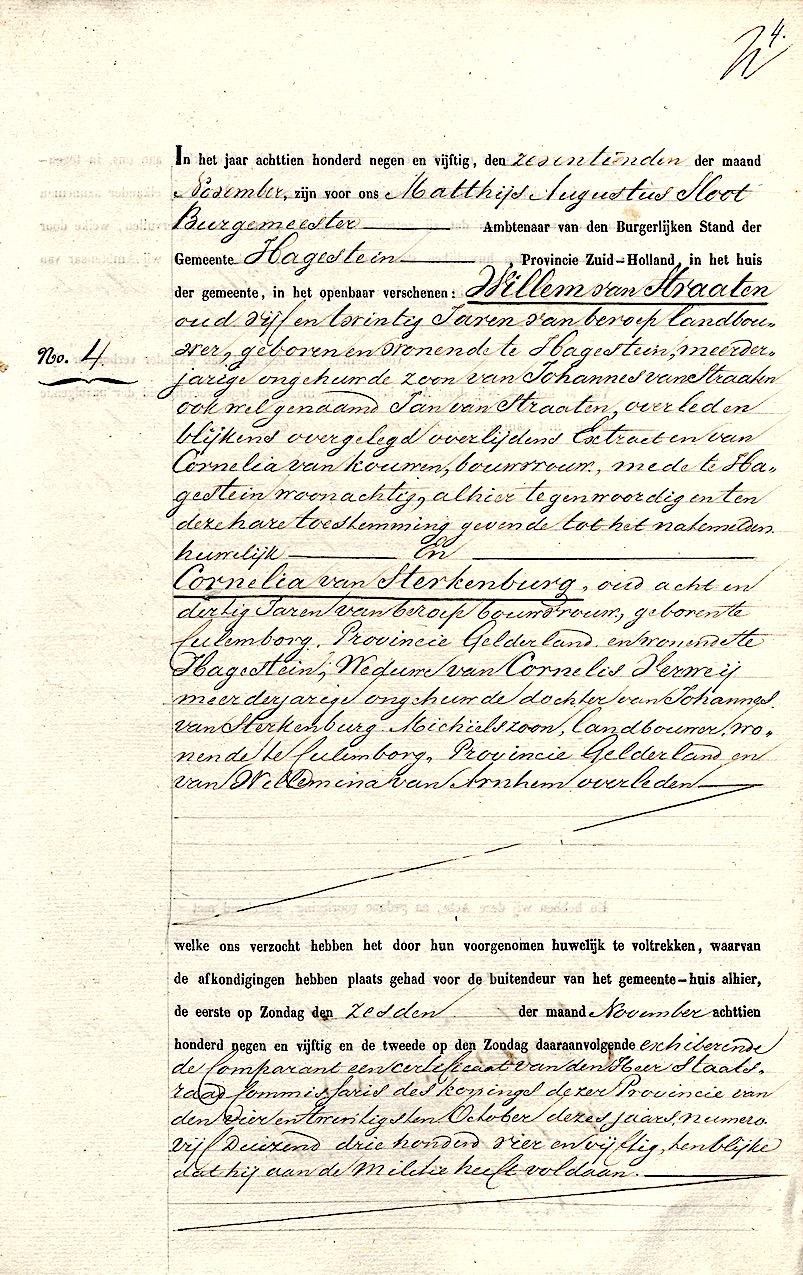 4.
In het jaar achttien honderd negen en vijftig, den zesentienden der maand
November, zijn voor ons Matthijs Augustus Sloot
Burgemeester Ambtenaar van den Burgerlijken Stand der
Gemeente Hagestein Provincie Zuid-Holland, in het huis
der gemeente, in het openbaar verschenen: Willem van Straaten
oud vijf en twintig Jaren van beroep landbou-
No. 4
wer, geboren en wonende te Hagestein, meerder-
jarige ongehuwde zoon van Johannes van Straaten
ook wel genaamd Jan van Straaten, overleden
blijkens overgelegd overlijdens Extract en van
Cornelia van Kouwen, bouwvrouw, mede te Ha-
gestein woonachtig, alhier tegenwoordig en ten
deze hare toestemming gevende tot het natemelden
huwelijk En
Cornelia van Sterkenburg, oud acht en
dertig Jaren van beroep bouwvrouw, geboren te
Culemborg, Provincie Gelderland en wonende te
Hagestein, Weduwe van Cornelis Verweij
meerderjarige ongehuwde dochter van Johannes
van Sterkenburg Michielszoon, landbouwer, wo-
nende te Culemborg, Provincie Gelderland en
van Willemina van Arnhem overleden
welke ons verzocht hebben het door hun voorgenomen huwelijk te voltrekken, waarvan
de afkondigingen hebben plaats gehad voor de buitendeur van het gemeente-huis alhier,
de eerste op Zondag den zesden der maand November achttien
honderd negen en vijftig en de tweede op den Zondag daaraanvolgende exhiberende
de Comparant een certificaat van den Heer Staats-
raad Commissaris des konings dezer Provincie van
den vier en twintigsten October dezes jaars, numero
vijf Duizend drie honderd vier en vijftig, ten blijke
dat hij aan de Militie heeft voldaan.